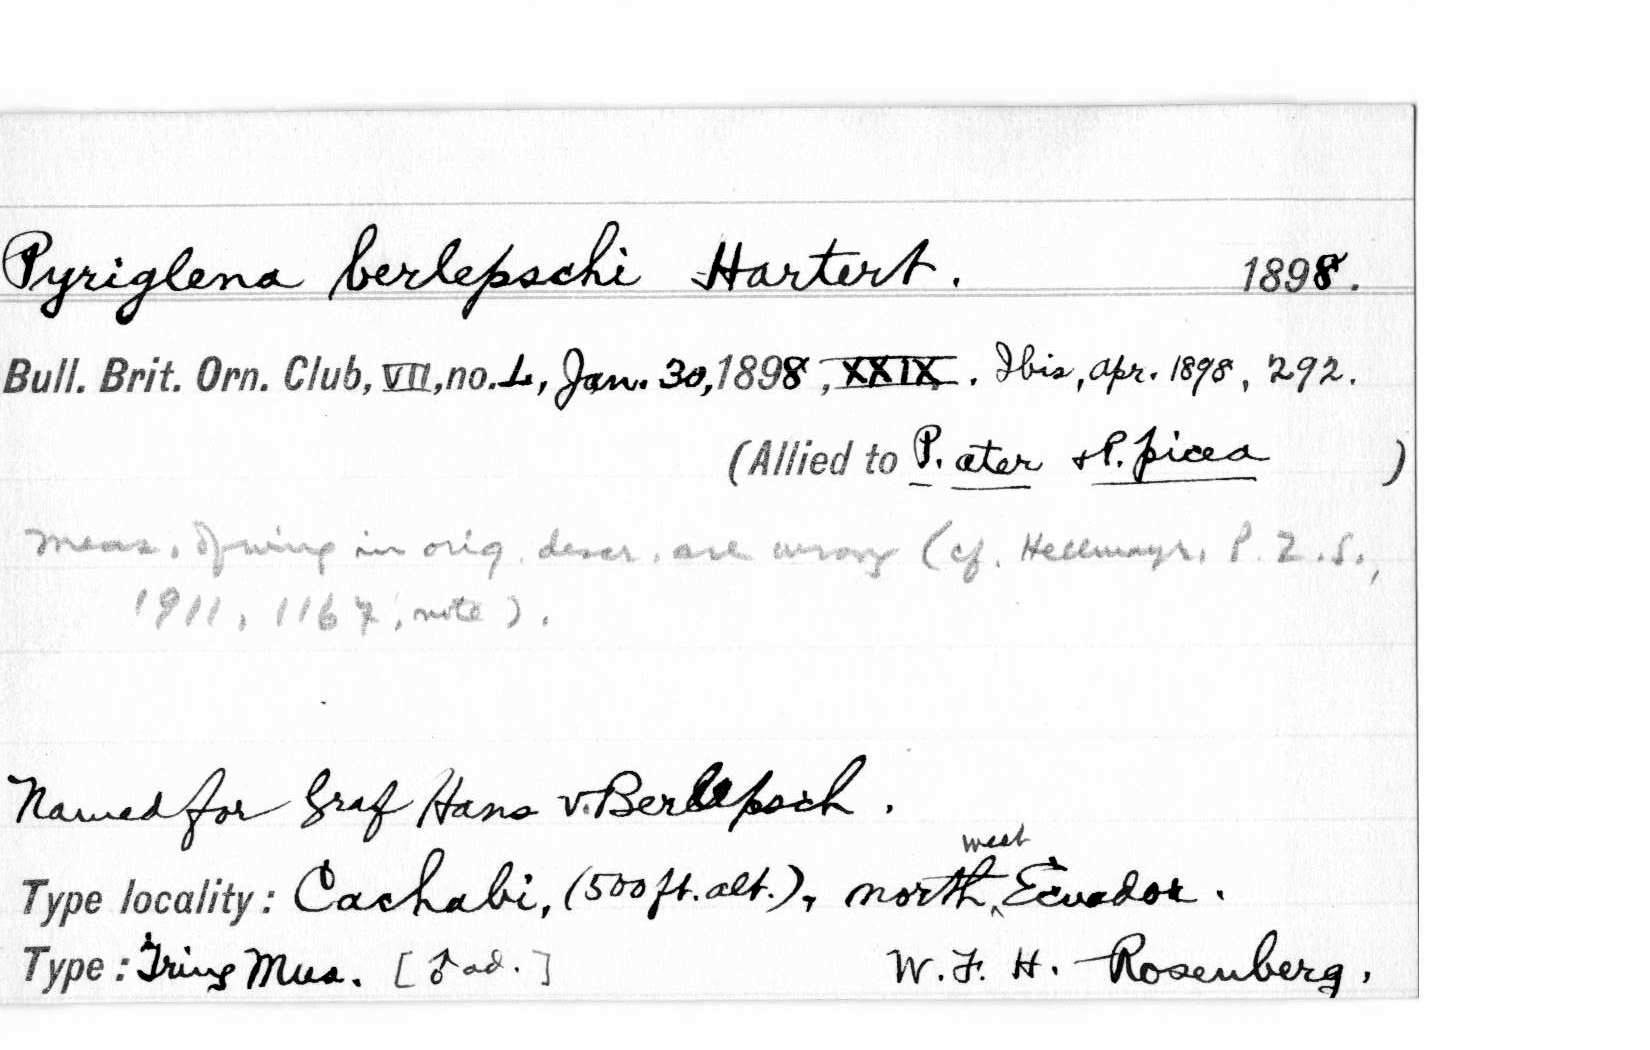 Pyriglena berlepschi Hartert. 1898.
Bull. Brit. Orn. Club, VII, no. 4, Jan. 30, 1898, XXIX. Ibis, Apr. 1898, 292.
(Allied to P. ater & P. picea )
Meas. of wing in orig. descr. are wrong (cf. Hellmayr, P.Z.S.,
1911, 1167, note).
Named for Graf Hans v. Berlepsch.
west
Type locality: Cachabi, (500 ft. alt.), north ‸ Ecuador.
Type: Tring Mus. [♂ ad.] W. F. H. Rosenberg.